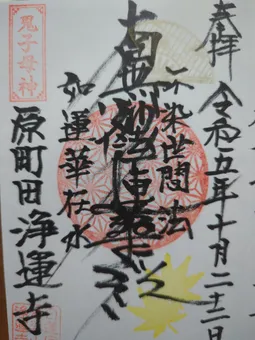 奉拝
令和五年十月二十二日
不染世間法
南無妙法蓮華経
如蓮華在水
鬼子母神
原町田浄運寺